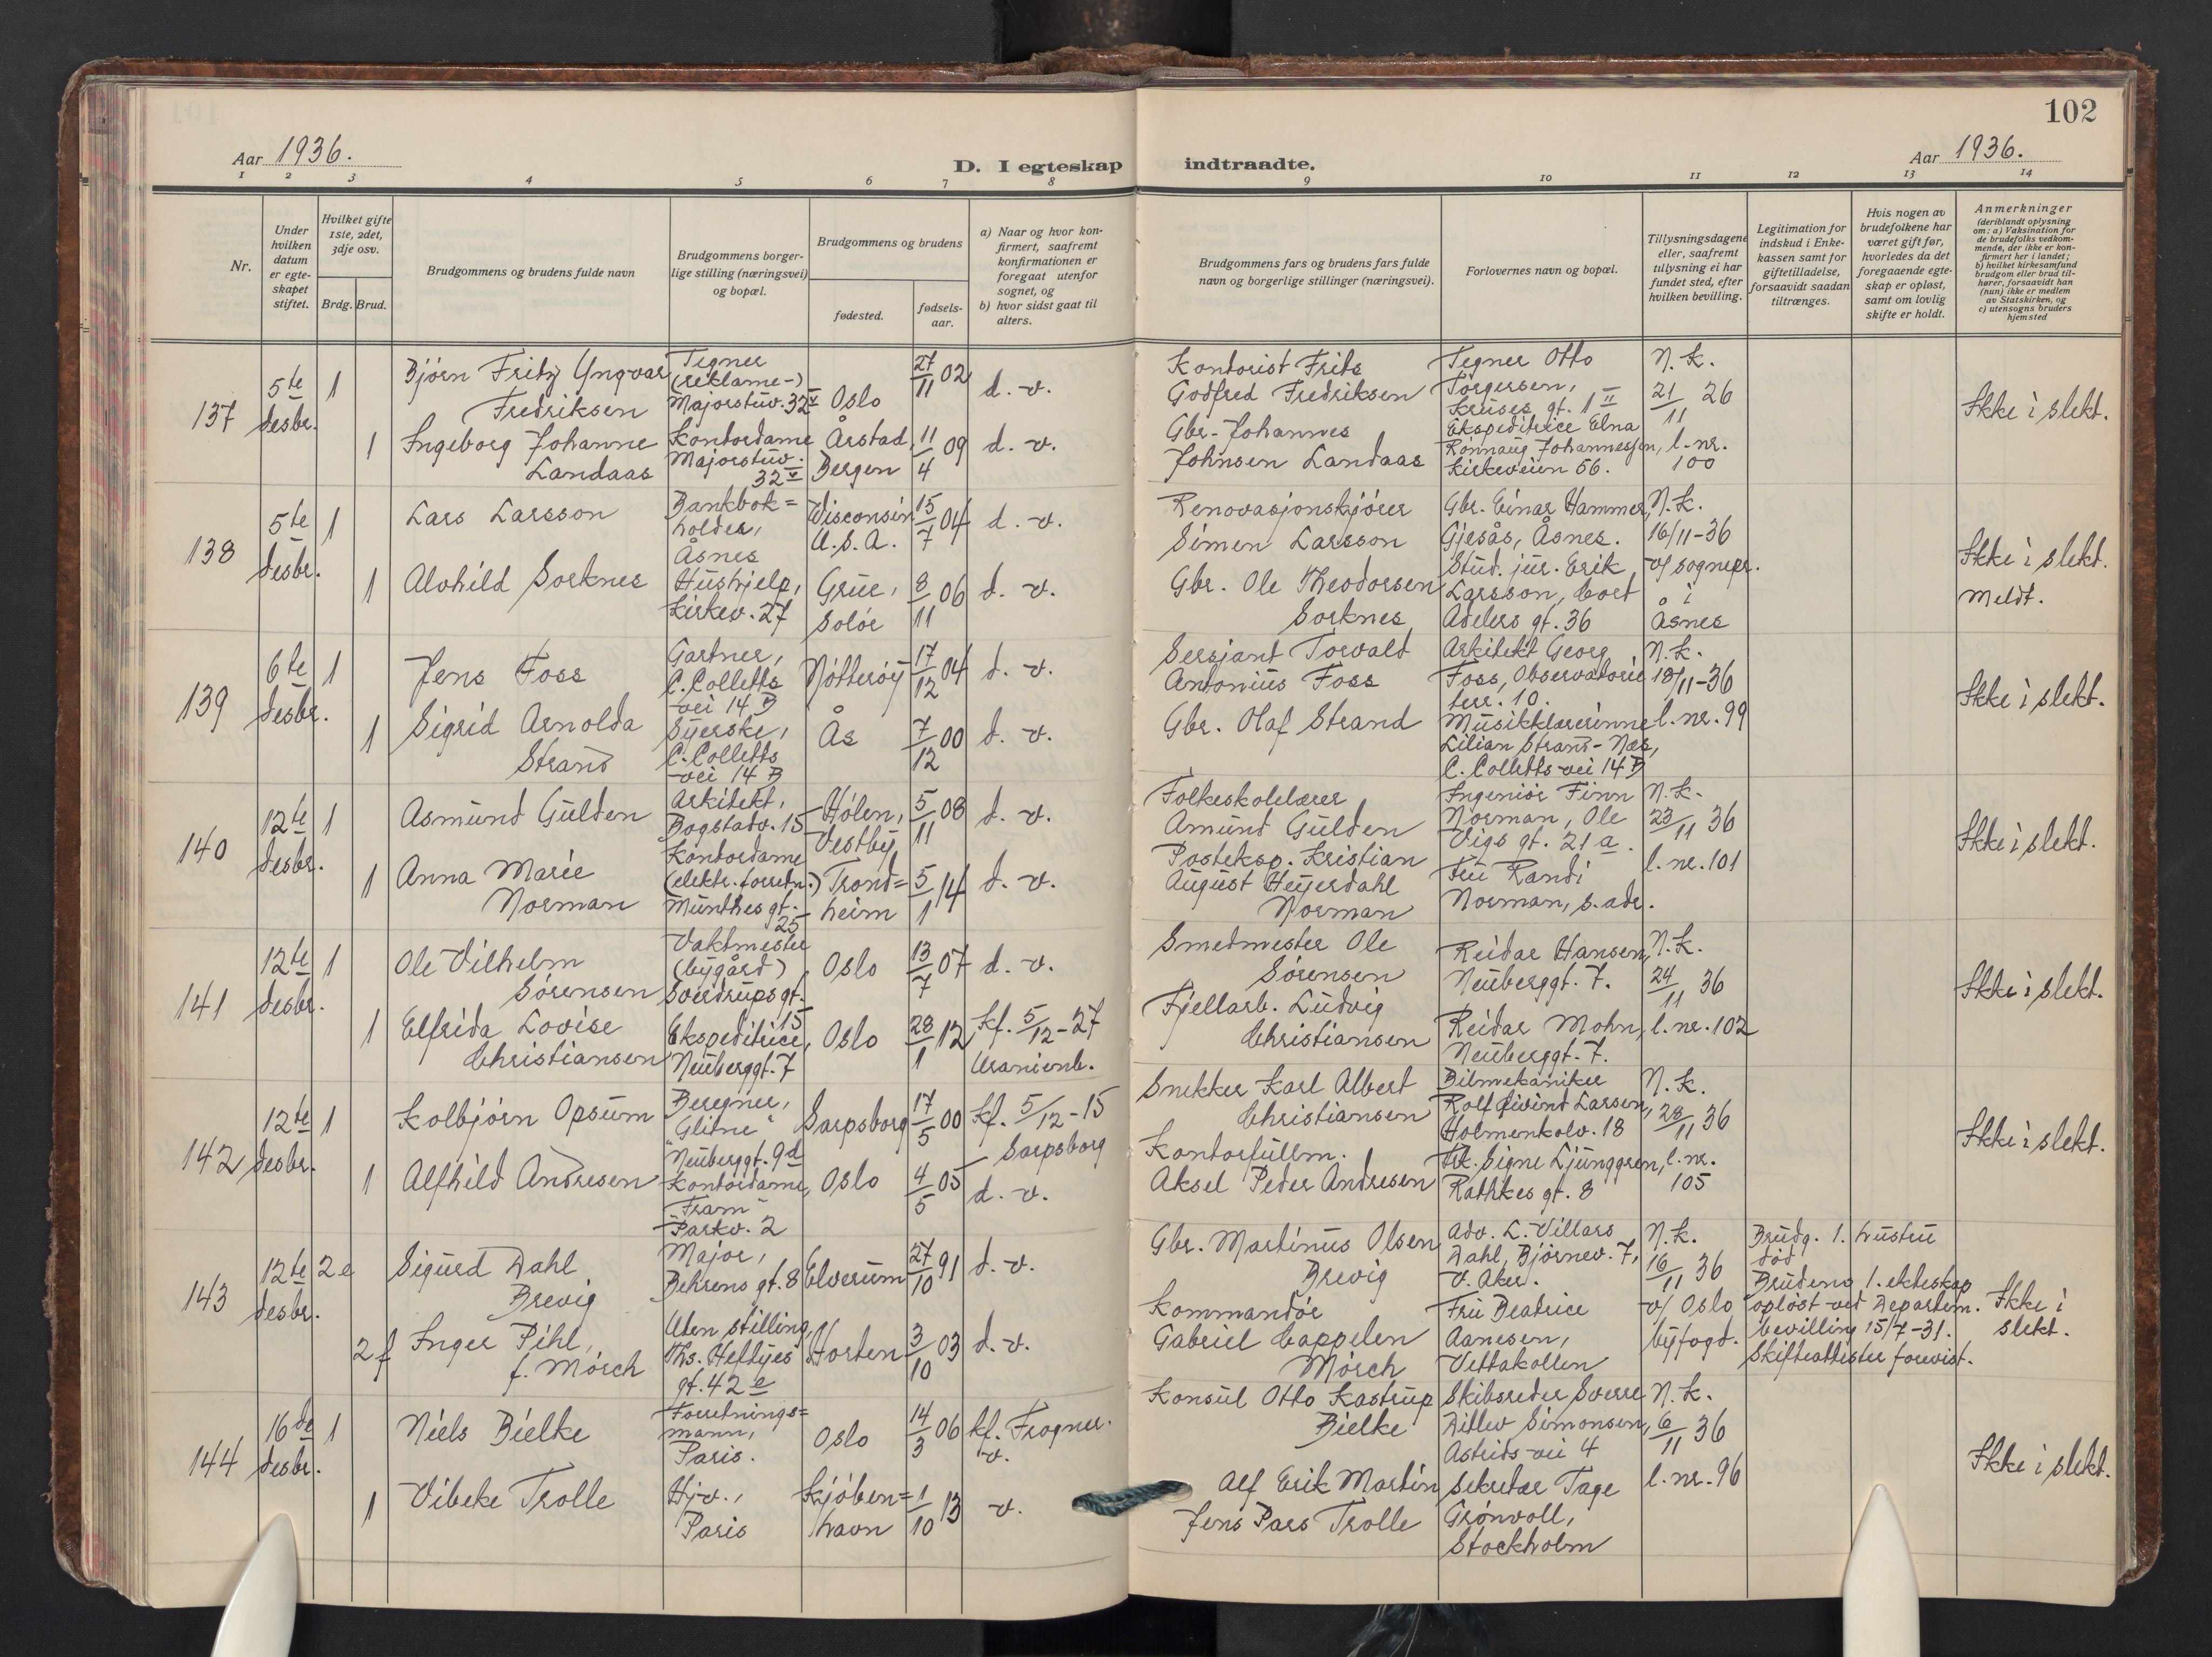 102
Aar 1936.
D. I egteskap indtraadte.
Aar 1936.
1 2 3 4 5 6 7 8 9 10 11 12 13 14
Nr.
Under
hvilken
datum
er egte-
skapet
stiftet.
Hvilket gifte
1ste, 2det,
3dje osv.
Brdg. Brud.
Brudgommens og brudens fulde navn
Brudgommens borger-
lige stilling (næringsvei)
og bopæl.
Brudgommens og brudens
fødested.
fødsels-
aar.
a) Naar og hvor kon-
firmert, saafremt
konfirmationen er
foregaat utenfor
sognet, og
b) hvor sidst gaat til
alters.
Brudgommens fars og brudens fars fulde
navn og borgerlige stillinger (næringsvei).
Forlovernes navn og bopæl.
Tillysningsdagene
eller, saafremt
tillysning ei har
fundet sted, efter
hvilken bevilling.
Legitimation for
indskud i Enke-
kassen samt for
giftetilladelse,
forsaavidt saadan
tiltrænges.
Hvis nogen av
brudefolkene har
været gift før,
hvorledes da det
foregaaende egte-
skap er opløst,
samt om lovlig
skifte er holdt.
Anmerkninger
(deriblandt oplysning
om: a) Vaksination for
de brudefolks vedkom-
mende, der ikke er kon-
firmert her i landet;
b) hvilket kirkesamfund
brudgom eller brud til-
hører, forsaavidt han
(hun) ikke er medlem
av Statskirken, og
c) utensogns bruders
hjemsted
137
5te
desbr.
1
Bjørn Fritz Yngvar
Fredriksen
Tegner
(reklame-)
Majorstuv. 32 V
Oslo
27/11 02
d. v.
Kontorist Frits
Godfred Fredriksen
Tegner Otto
Torgersen,
Kruses gt. 1 II
N. k.
21/11 26
Ikke i slekt.
1
Ingeborg Johanne
Landaas
Kontordame
Majorstuv.
32 V
Årstad,
Bergen
11/4 09
d. v.
Gbr. Johannes
Johnsen Landaas
Ekspeditrice Elna
Rønnaug Johannessen,
Kirkeveien 56.
l. nr.
100
138
5te
desbr.
1
Lars Larsson
Bankbok=
holder,
Åsnes
Wisconsin
U. S. A.
15/7 04
d. v.
Renovasjonskjører
Simen Larsson
Gbr. Einar Hammer,
Gjesås, Åsnes.
N. k.
16/11-36
v/ sognepr.
i
Åsnes
Ikke i slekt.
Meldt.
1
Alvhild Sorknes
Hushjelp,
Kirkev. 27
Grue,
Solør
8/11 06
d. v.
Gbr. Ole Theodorsen
Sorknes
Stud. jur. Erik
Larsson, Cort
Adelers gt. 36
139
6te
desbr.
1
Jens Foss
Gartner,
C. Colletts
vei 14 B
Nøtterøy
17/12 04
d. v.
Sersjant Torvald
Antonius Foss
Arkitekt Georg
Foss, Observatorie
terr. 10.
N. k.
18/11-36
l. nr. 99
Ikke i slekt.
1
Sigrid Arnolda
Strand
Syerske,
C. Colletts
vei 14 B
Ås
7/12 00
d. v.
Gbr. Olaf Strand
Musikklærerinne
Lilian Strand-Næs,
C. Colletts vei 14 B
140
12te
desbr.
1
Asmund Gulden
Arkitekt,
Bogstadv. 15
Hølen,
Vestby
5/11 08
d. v.
Folkeskolelærer
Amund Gulden
Ingeniør Finn
Norman, Ole
Vigs gt. 21 a.
N. k.
23/11 36
l. nr. 101
Ikke i slekt.
1
Anna Marie
Norman
Kontordame
(elektr. forretn.)
Munthes gt.
25
Trond=
heim
5/1 14
d. v.
Posteksp. Kristian
August Heyerdahl
Norman
Fru Randi
Norman, s. adr.
141
12te
desbr.
1
Ole Vilhelm
Sørensen
Vaktmester
(bygård)
Sverdrups gt.
15
Oslo
13/7 07
d. v.
Smedmester Ole
Sørensen
Reidar Hansen,
Neuberggt. 7.
N. k.
24/11 36
l. nr. 102
Ikke i slekt.
1
Elfrida Lovise
Christiansen
Ekspeditrice,
Neuberggt. 7
Oslo
28/1 12
Kf. 5/12-27
Uranienb.
Fjellarb. Ludvig
Christiansen
Reidar Mohn,
Neuberggt. 7.
142
12te
desbr.
1
Kolbjørn Opsum
Beregner,
"Glitne"
Neuberggt. 9 d
Sarpsborg
17/5 00
Kf. 5/12-15
Sarpsborg
Snekker Karl Albert
Christiansen
Bilmekaniker
Rolf Eivind Larsen,
Holmenkolv. 18
N. k.
28/11 36
Ikke i slekt.
1
Alfhild Andresen
Kontordame,
"Fram"
Parkv. 2
Oslo
4/5 05
d. v.
Kontorfullm.
Aksel Peder Andresen
Frk. Signe Ljunggren,
Rathkes gt. 8
l. nr.
105
143
12te
desbr.
2 e
Sigurd Dahl
Brevig
Major,
Behrens gt. 8
Elverum
27/10 91
d. v.
Gbr. Martinus Olsen
Brevig
Adv. L. Villars
Dahl, Bjørnev. 7,
V. Aker.
N. k.
16/11 36
v/ Oslo
byfogd.
Brudg. 1. hustru
død
Brudens 1. ekteskap
opløst ved Departem.
bevilling 15/7-31.
Skifteattester forevist.
Ikke i
slekt.
2 f
Inger Pihl,
f. Mørch
Uten stilling,
Ths. Heftyes
gt. 42 e
Horten
3/10 03
d. v.
Kommandør
Gabriel Cappelen
Mørch
Fru Beatrice
Aanesen,
Vettakollen
144
16de
desbr.
1
Niels Bielke
Forretnings=
mann,
Paris.
Oslo
14/3 06
kf. Frogner.
v.
Konsul Otto Kastrup
Bielke
Skibsreder Sverre
Ditlev Simonsen,
Astrids vei 4
N. k.
6/11 36
l. nr. 96
Ikke i slekt.
1
Vibeke Trolle
Hjv.,
Paris
Kjøben=
havn
1/10 13
v.
Alf Erik Martin
Jens Pars Trolle
Sekretær Tage
Grønvoll,
Stockholm